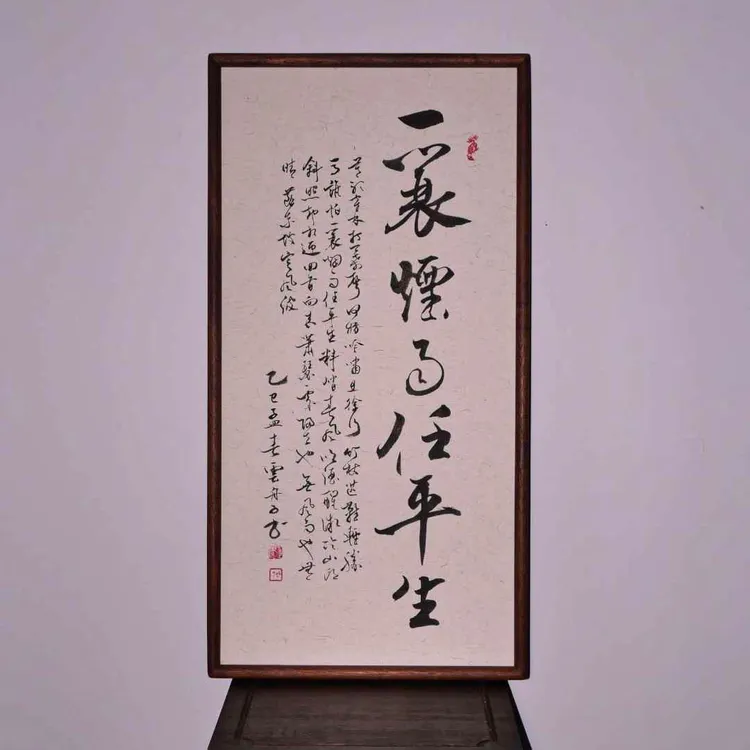 一蓑煙雨任平生
莫听穿林打葉聲何妨吟嘯且徐行竹杖芒鞋輕勝
馬誰怕一蓑烟雨任平生料峭春風吹酒醒微冷山頭
斜照却相迎回首向来蕭瑟處歸去也無風雨也無
晴蘇東坡定風波
乙巳孟春雲舟子书